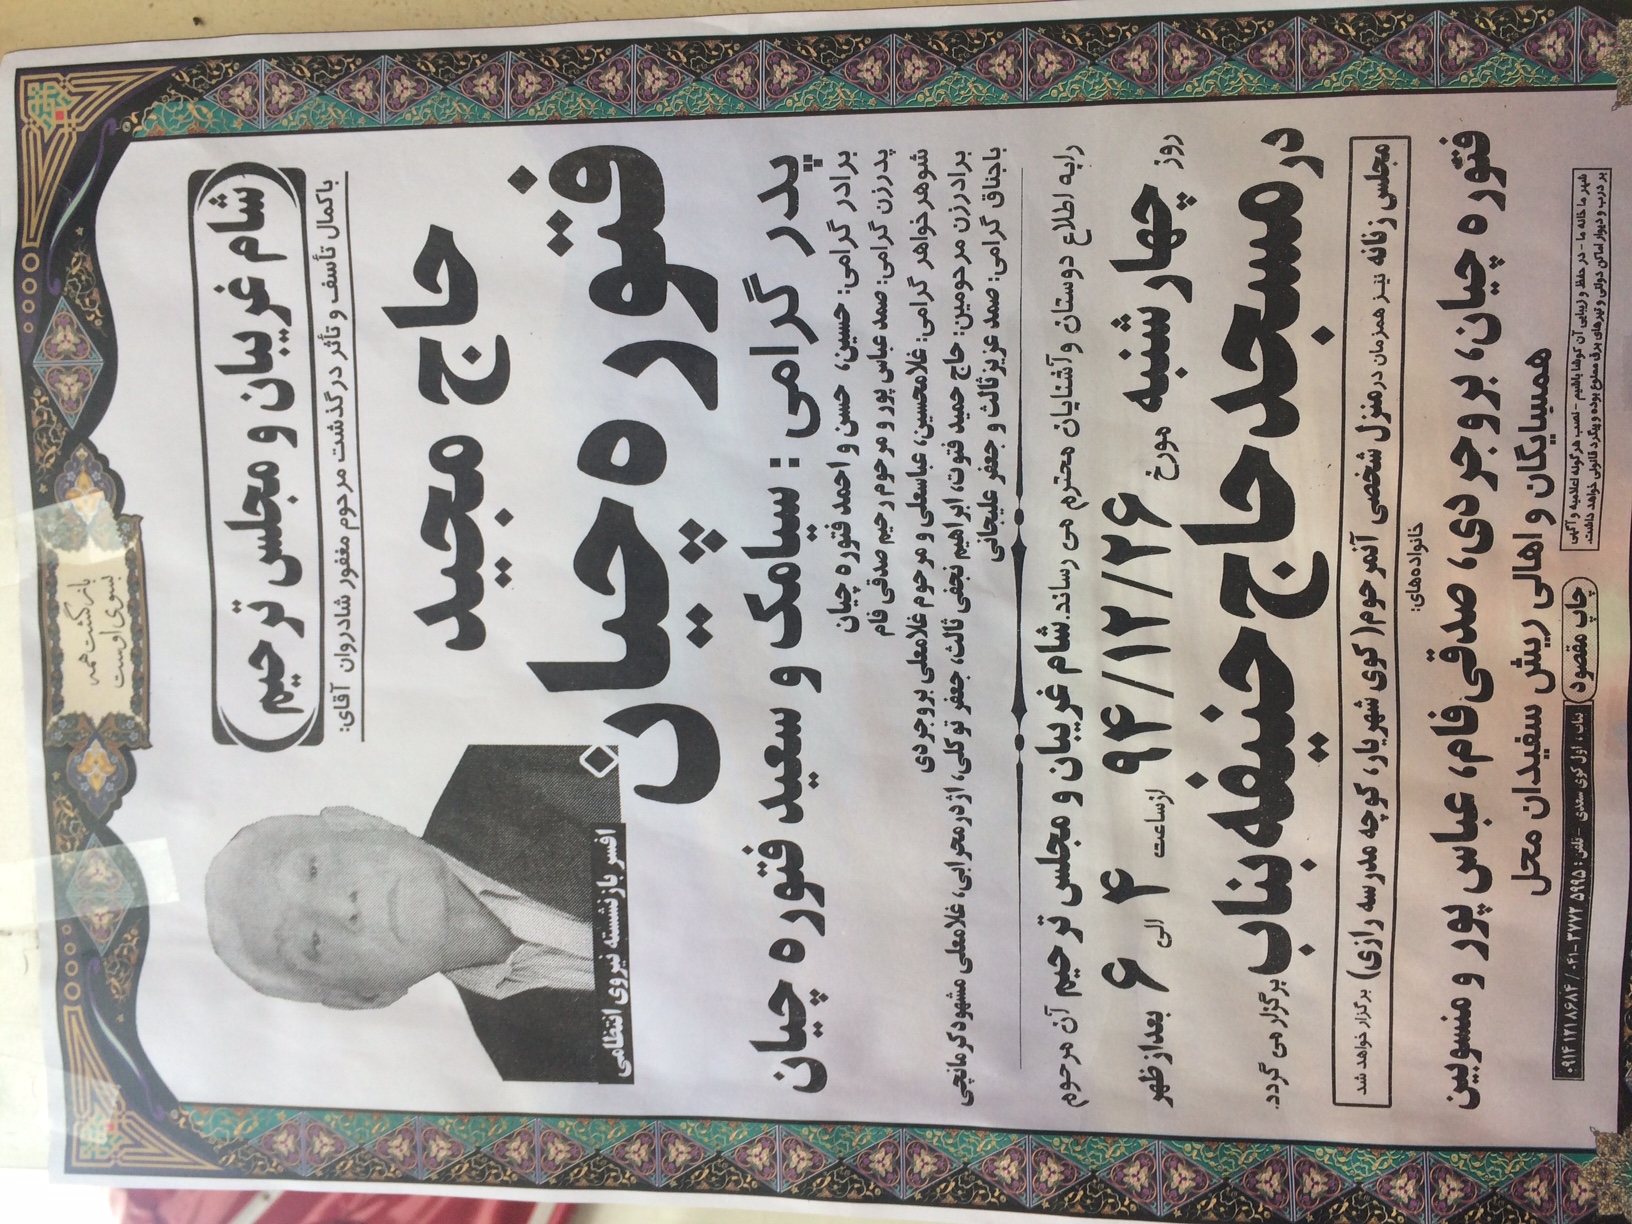 بازگشت همه
بسوی اوست
شام غریبان و مجلس ترحیم
باکمال تأسف و تأثر درگذشت مرحوم مغفور شادروان آقای:
حاج مجید
فتوره چیان
افسر بازنشسته نیروی انتظامی
پدر گرامی: سیامک و سعید فتوره چیان
برادر گرامی: حسین، حسن و احمد فتوره چیان
پدرزن گرامی: صمد عباس پور و مرحوم رحیم صدقی فام
شوهرخواهر گرامی: غلامحسین، عباسعلی و مرحوم غلامعلی بروجردی
برادرزن مرحومین: حاج حمید فتوت، ابراهیم نجفی ثالث، جعفر توکلی، اژدر محرابی، غلامعلی مشهودکرمانچی
باجناق گرامی: صمد عزیز ثالث و جعفر علیجانی
را به اطلاع دوستان و آشنایان محترم می رساند. شام غریبان و مجلس ترحیم آن مرحوم
روز چهارشنبه مورخ ۹۴/۱۲/۲۶ از ساعت ۴ الی ۶ بعدازظهر
در مسجد حاج حنیفه بناب برگزار می گردد.
مجلس زنانه نیز همزمان در منزل شخصی آنمرحوم (کوی شهریار، کوچه مدرسه رازی) برگزار خواهد شد
خانواده‌های:
فتوره چیان، بروجردی، صدقی فام، عباس پور و منسوبین
همسایگان و اهالی ریش سفیدان محل
شهر ما خانه ما - در حفظ و زیبایی آن کوشا باشیم - نصب هرگونه اعلامیه و آگهی
بر درب و دیوار اماکن دولتی و تیرهای برق ممنوع بوده و پیگرد قانونی خواهد داشت.
چاپ مقصود
بناب : اول کوی سعدی - تلفن : ۵۹۹۵ ۳۷۷۲ -۰۴۱ / ۰۹۱۴ ۱۲۱ ۸۶۸۴